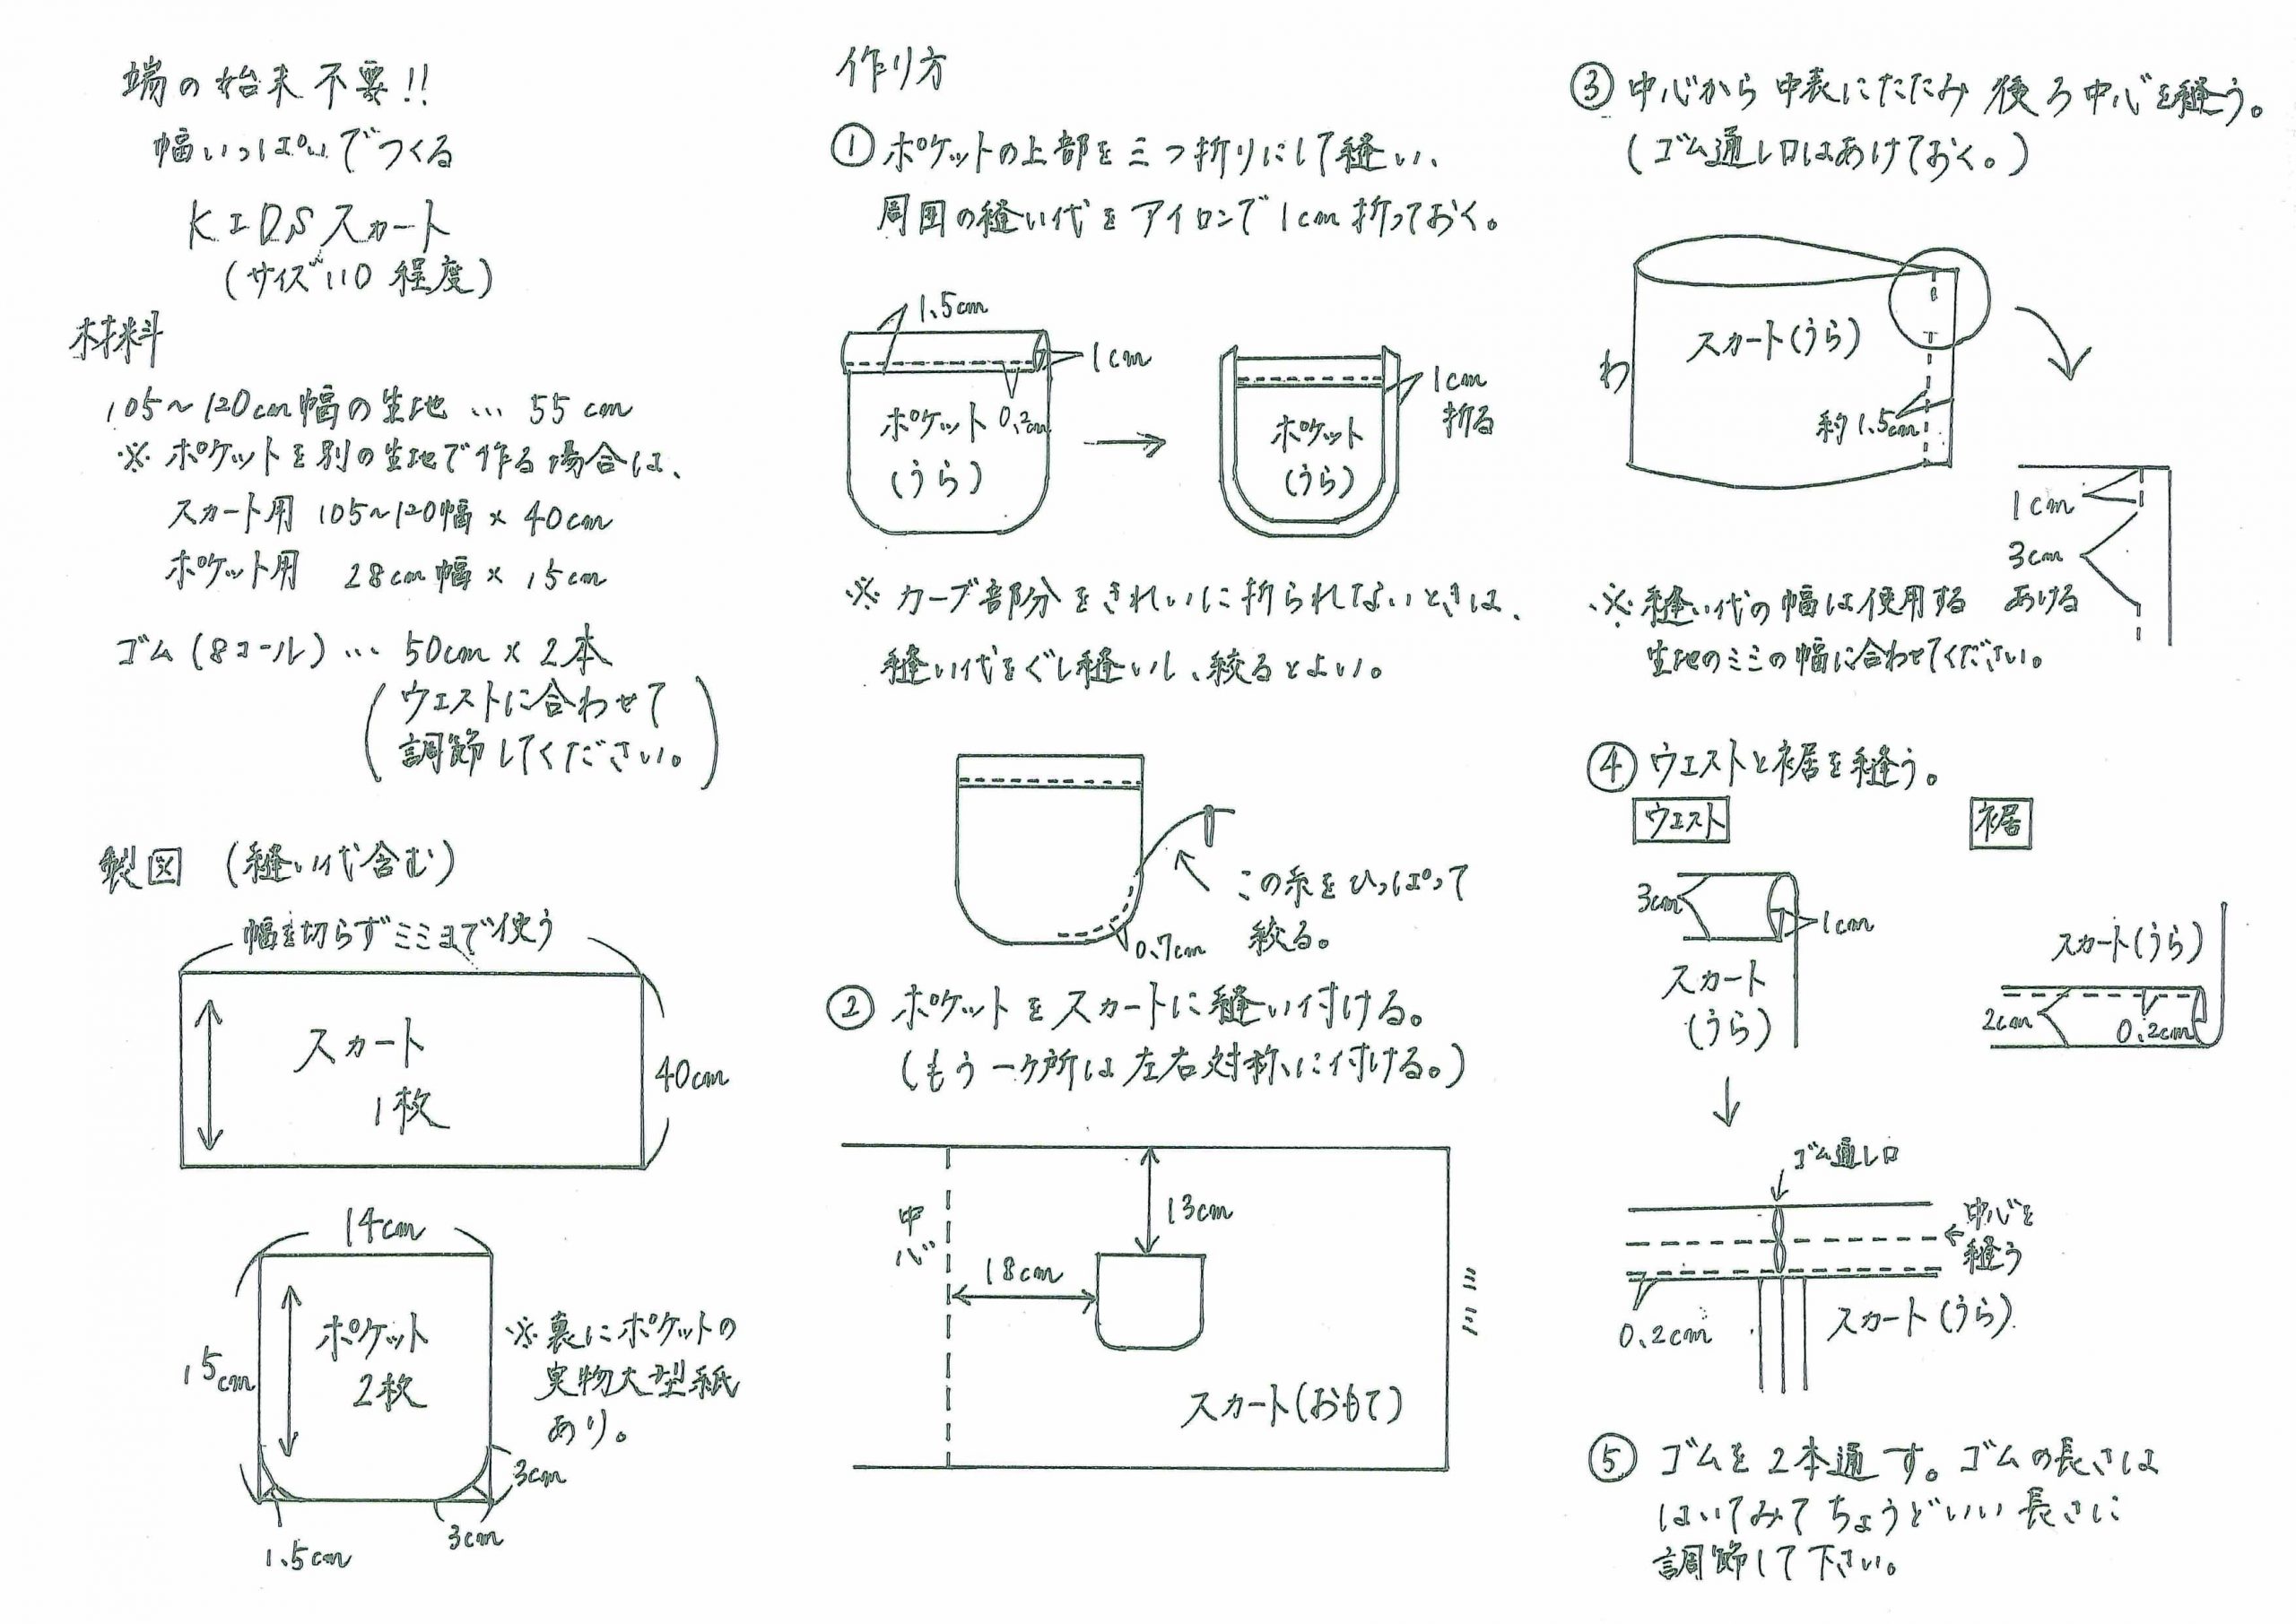 端の始末不要!!
幅いっぱいでつくる
KIDSスカート
(サイズ110程度)
材料
105~120cm幅の生地 … 55cm
※ポケットを別の生地で作る場合は、
スカート用 105~120幅 × 40cm
ポケット用 28cm幅 × 15cm
ゴム(8コール)… 50cm × 2本
(ウェストに合わせて
調節してください。)
製図 (縫い代含む)
幅を切らずミミまで使う
スカート
1枚
40cm
14cm
15cm
ポケット
2枚
※裏にポケットの
実物大型紙
あり。
3cm
3cm
1.5cm
作り方
①ポケットの上部を三つ折りにして縫い、
周囲の縫い代をアイロンで1cm折っておく。
1.5cm
1cm
0.2cm
ポケット
(うら)
1cm
折る
ポケット
(うら)
※カーブ部分をきれいに折られないときは、
縫い代をぐし縫いし、絞るとよい。
この糸をひっぱって
絞る。
0.7cm
②ポケットをスカートに縫い付ける。
(もう一ヶ所は左右対称に付ける。)
中心
13cm
18cm
ミミ
スカート(おもて)
③中心から中表にたたみ後ろ中心を縫う。
(ゴム通し口はあけておく。)
わ
スカート(うら)
約1.5cm
1cm
3cm
あける
※縫い代の幅は使用する
生地のミミの幅に合わせてください。
④ウェストと裾を縫う。
ウェスト
裾
3cm
1cm
スカート
(うら)
スカート(うら)
2cm
0.2cm
ゴム通し口
中心を
縫う
0.2cm
スカート(うら)
⑤ゴムを2本通す。ゴムの長さは
はいてみてちょうどいい長さに
調節して下さい。